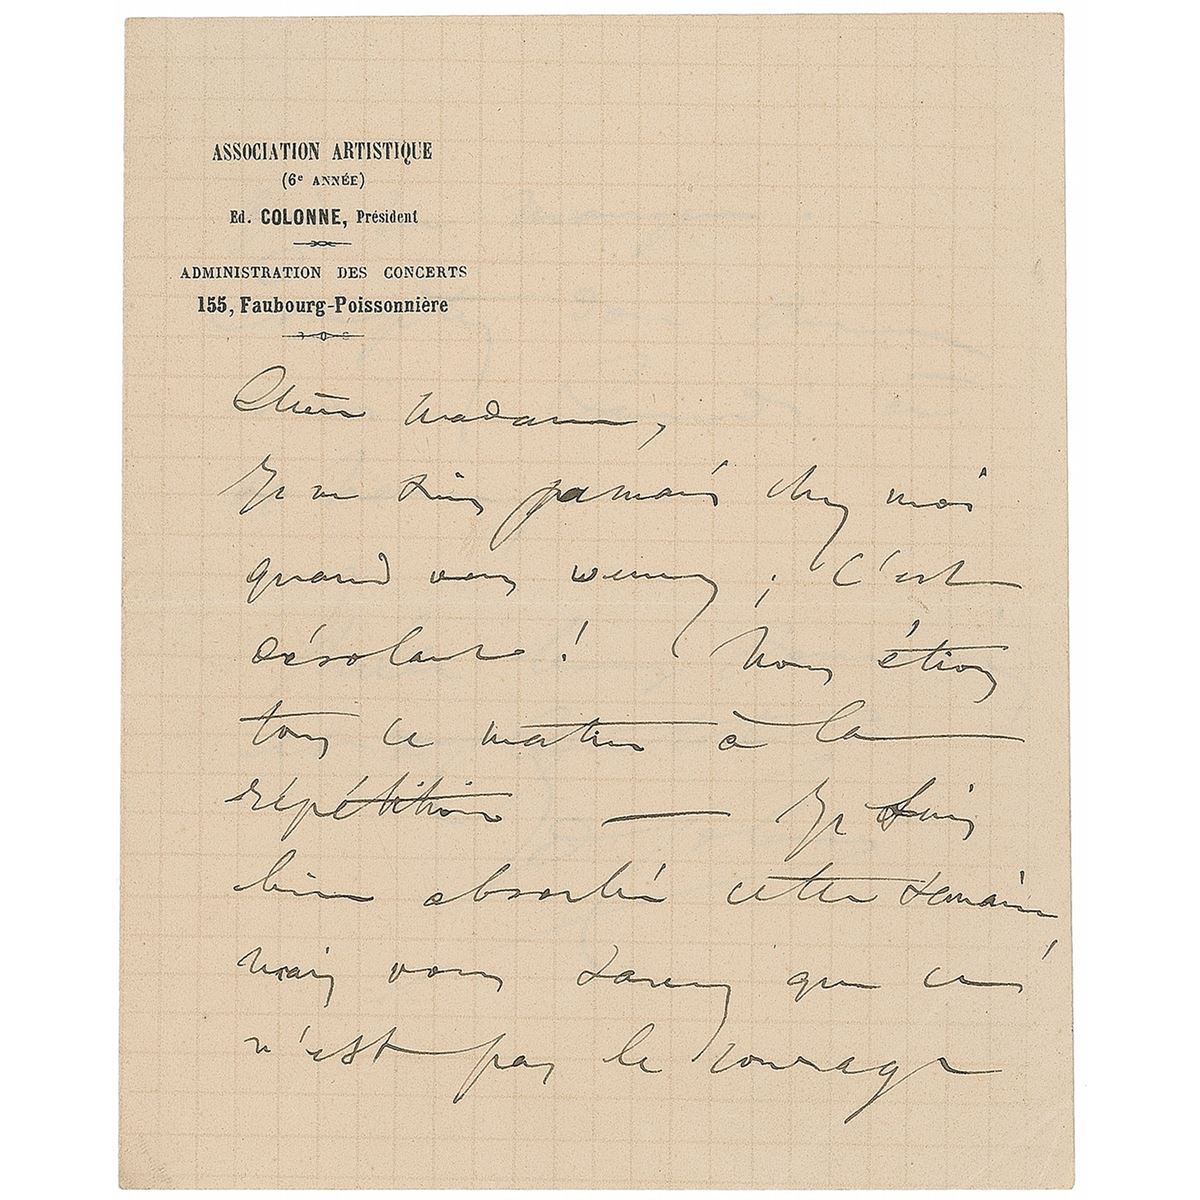 ASSOCIATION ARTISTIQUE
(6e ANNÉE)
Ed. COLONNE, Président
ADMINISTRATION DES CONCERTS
155, Faubourg-Poissonnière
Chère Madame,
Je ne suis jamais chez moi
quand vous venez ; C'est
désolant ! Nous étions
tous ce matin à la
répétition — Je suis
bien absorbé cette semaine,
mais vous savez que ce
n'est pas le courage